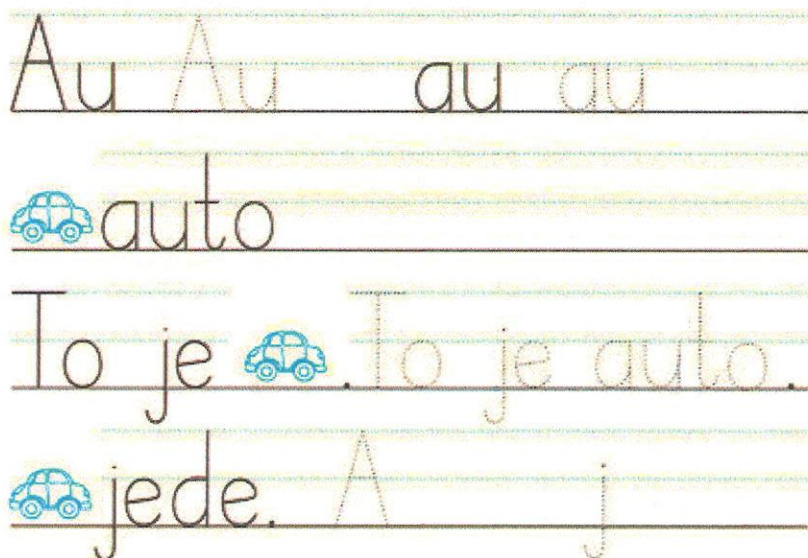 Au Au au au
auto
To je . To je auto.
jede. A j